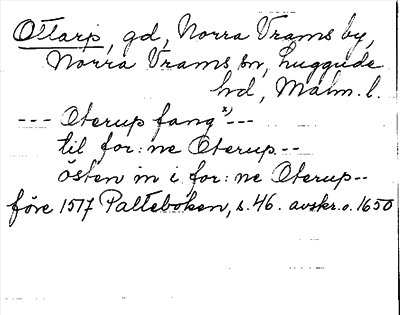 Ottarp, gd, Norra Vrams by,
Norra Vrams sn, Luggude
hd, Malm. l.
--- Oterup fang x) ---
til for: ne Oterup --
östen in i for: ne Oterup --
före 1517 Palteboken, s. 46. avskr. o. 1650